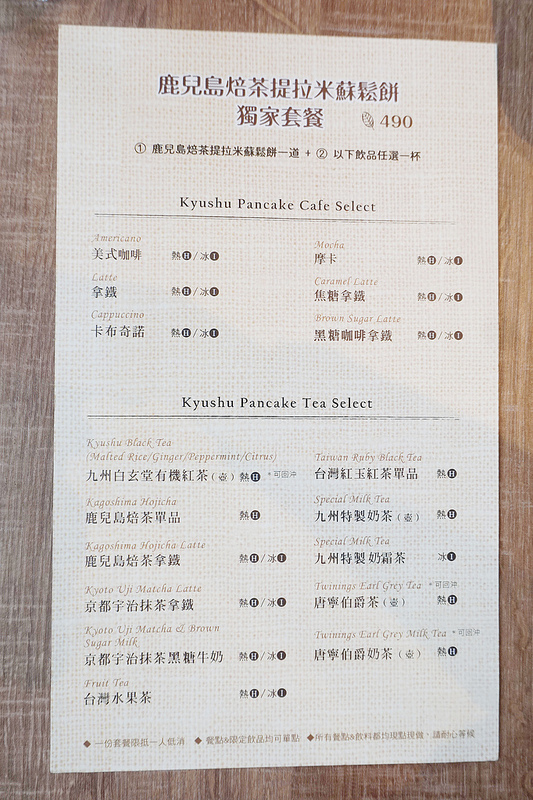 鹿兒島焙茶提拉米蘇鬆餅
獨家套餐 490
① 鹿兒島焙茶提拉米蘇鬆餅一道 + ② 以下飲品任選一杯
Kyushu Pancake Cafe Select
Americano
美式咖啡 熱H/冰I
Latte
拿鐵 熱H/冰I
Cappuccino
卡布奇諾 熱H/冰I
Mocha
摩卡 熱H/冰I
Caramel Latte
焦糖拿鐵 熱H/冰I
Brown Sugar Latte
黑糖咖啡拿鐵 熱H/冰I
Kyushu Pancake Tea Select
Kyushu Black Tea
(Malted Rice/Ginger/Peppermint/Citrus)
九州白玄堂有機紅茶(壺) 熱H *可回沖
Kagoshima Hojicha
鹿兒島焙茶單品 熱H
Kagoshima Hojicha Latte
鹿兒島焙茶拿鐵 熱H/冰I
Kyoto Uji Matcha Latte
京都宇治抹茶拿鐵 熱H/冰I
Kyoto Uji Matcha & Brown
Sugar Milk
京都宇治抹茶黑糖牛奶 熱H/冰I
Fruit Tea
台灣水果茶 熱H/冰I
Taiwan Ruby Black Tea
台灣紅玉紅茶單品 熱H
Special Milk Tea
九州特製奶茶(壺) 熱H
Special Milk Tea
九州特製奶霜茶 冰I
Twinings Earl Grey Tea *可回沖
唐寧伯爵茶(壺) 熱H
Twinings Earl Grey Milk Tea *可回沖
唐寧伯爵奶茶(壺) 熱H
◆ 一份套餐限抵一人低消 ◆ 餐點&限定飲品均可單點 ◆所有餐點&飲料都均現點現做，請耐心等候